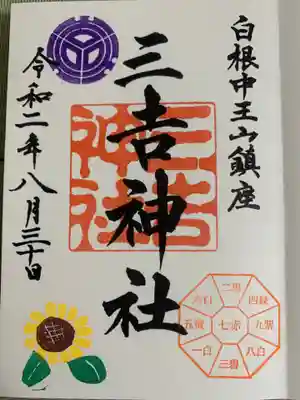 白根中王山鎮座
三吉神社
令和二年八月三十日
三吉神社
二黒
四緑
九紫
八白
三碧
一白
五黄
六白
七赤